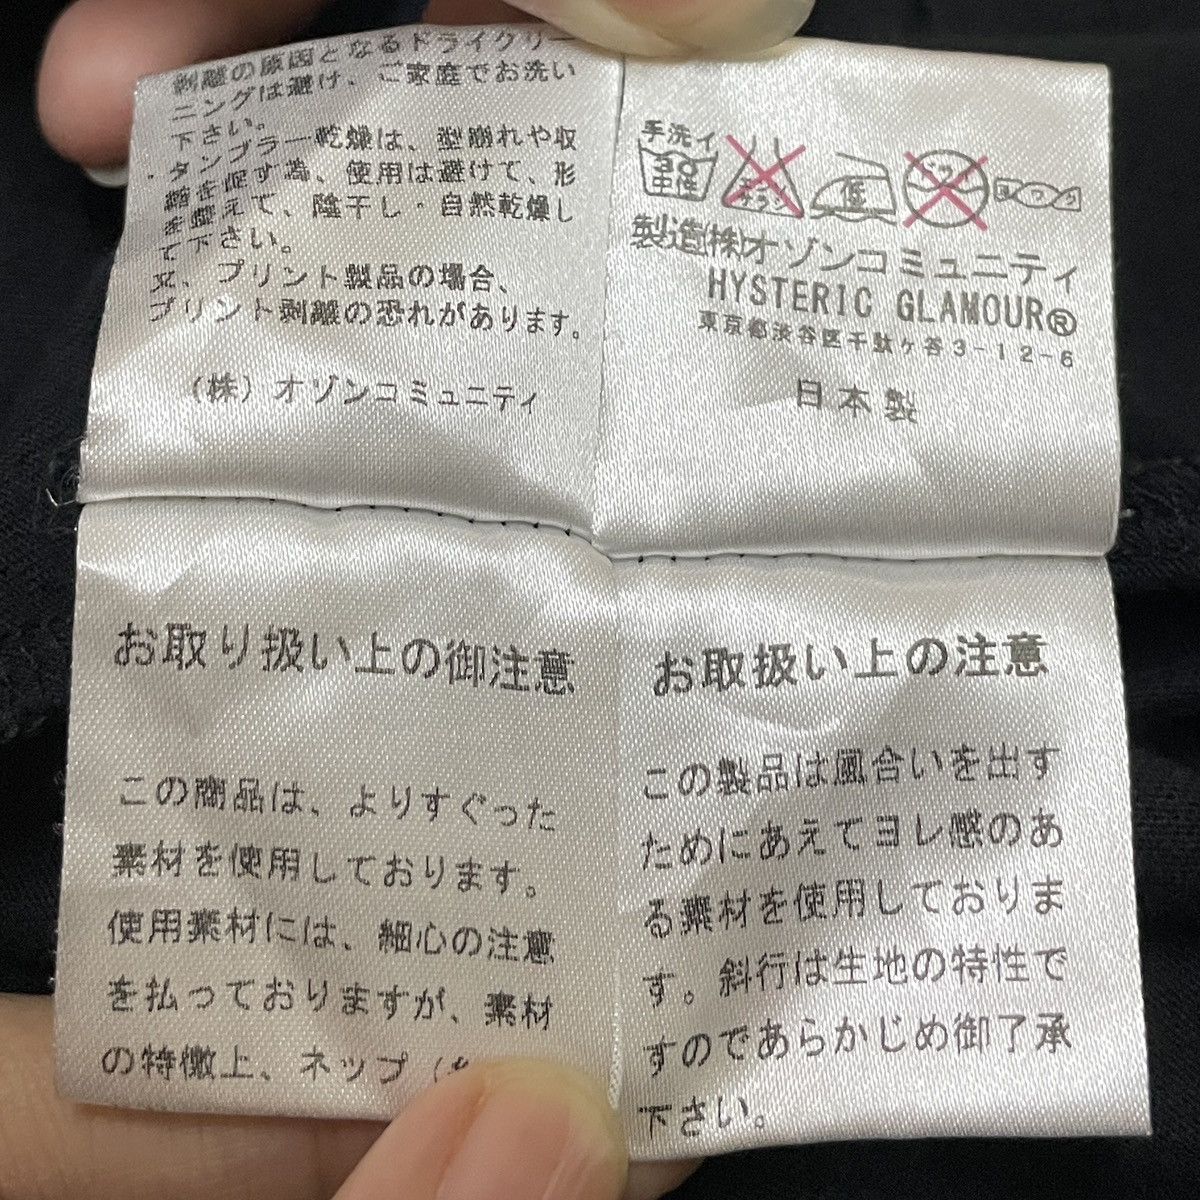 剥離の原因となるドライクリー
ニングは避け、ご家庭でお洗い
下さい。
・タンブラー乾燥は、型崩れや収
縮を促す為、使用は避けて、形
を整えて、陰干し・自然乾燥し
て下さい。
又、プリント製品の場合、
プリント剥離の恐れがあります。
(株)オゾンコミュニティ
手洗イ
30
中性
エンソ
サラシ
低
ドライ
ヨワク
製造(株)オゾンコミュニティ
HYSTERIC GLAMOUR®
東京都渋谷区千駄ヶ谷3-12-6
日本製
お取り扱い上の御注意
この商品は、よりすぐった
素材を使用しております。
使用素材には、細心の注意
を払っておりますが、素材
の特徴上、ネップ(
お取扱い上の注意
この製品は風合いを出す
ためにあえてヨレ感のあ
る素材を使用しておりま
す。斜行は生地の特性で
すのであらかじめ御了承
下さい。